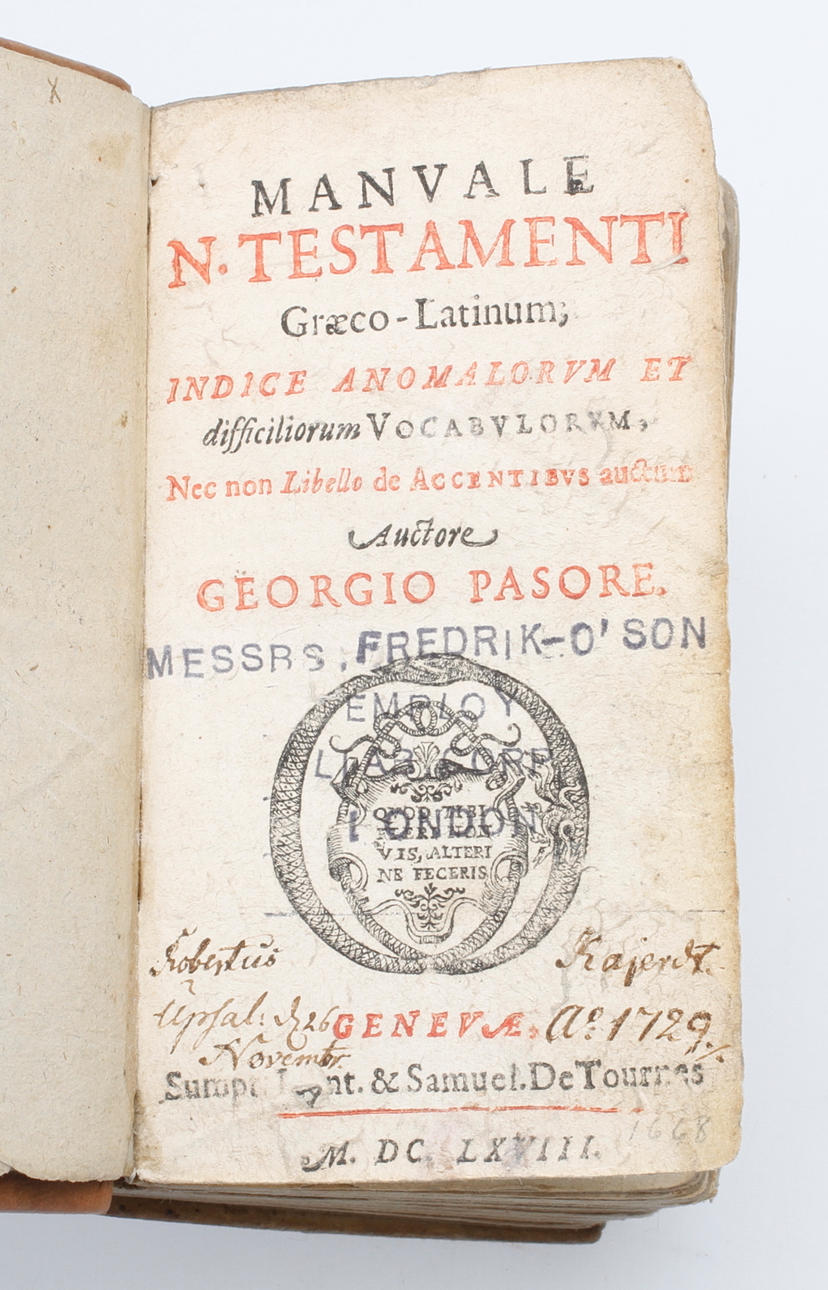 x
MANVALE
N. TESTAMENTI
Græco-Latinum;
INDICE ANOMALORVM ET
difficiliorum VOCABVLORVM,
Nec non Libello de ACCENTIBVS auctum
Auctore
GEORGIO PASORE.
MESSRS, FREDRIK-O'SON
EMPLOY
CORP
LONDON
QVOD TIBI
FIERI NON
VIS, ALTERI
NE FECERIS
Robertus Kajerdt.
Upsal: d 26 GENEVÆ, Aº. 1729.
Novembr.
Sumpt. & Samuel. De Tournes
M. DC. LXVIII.
1668